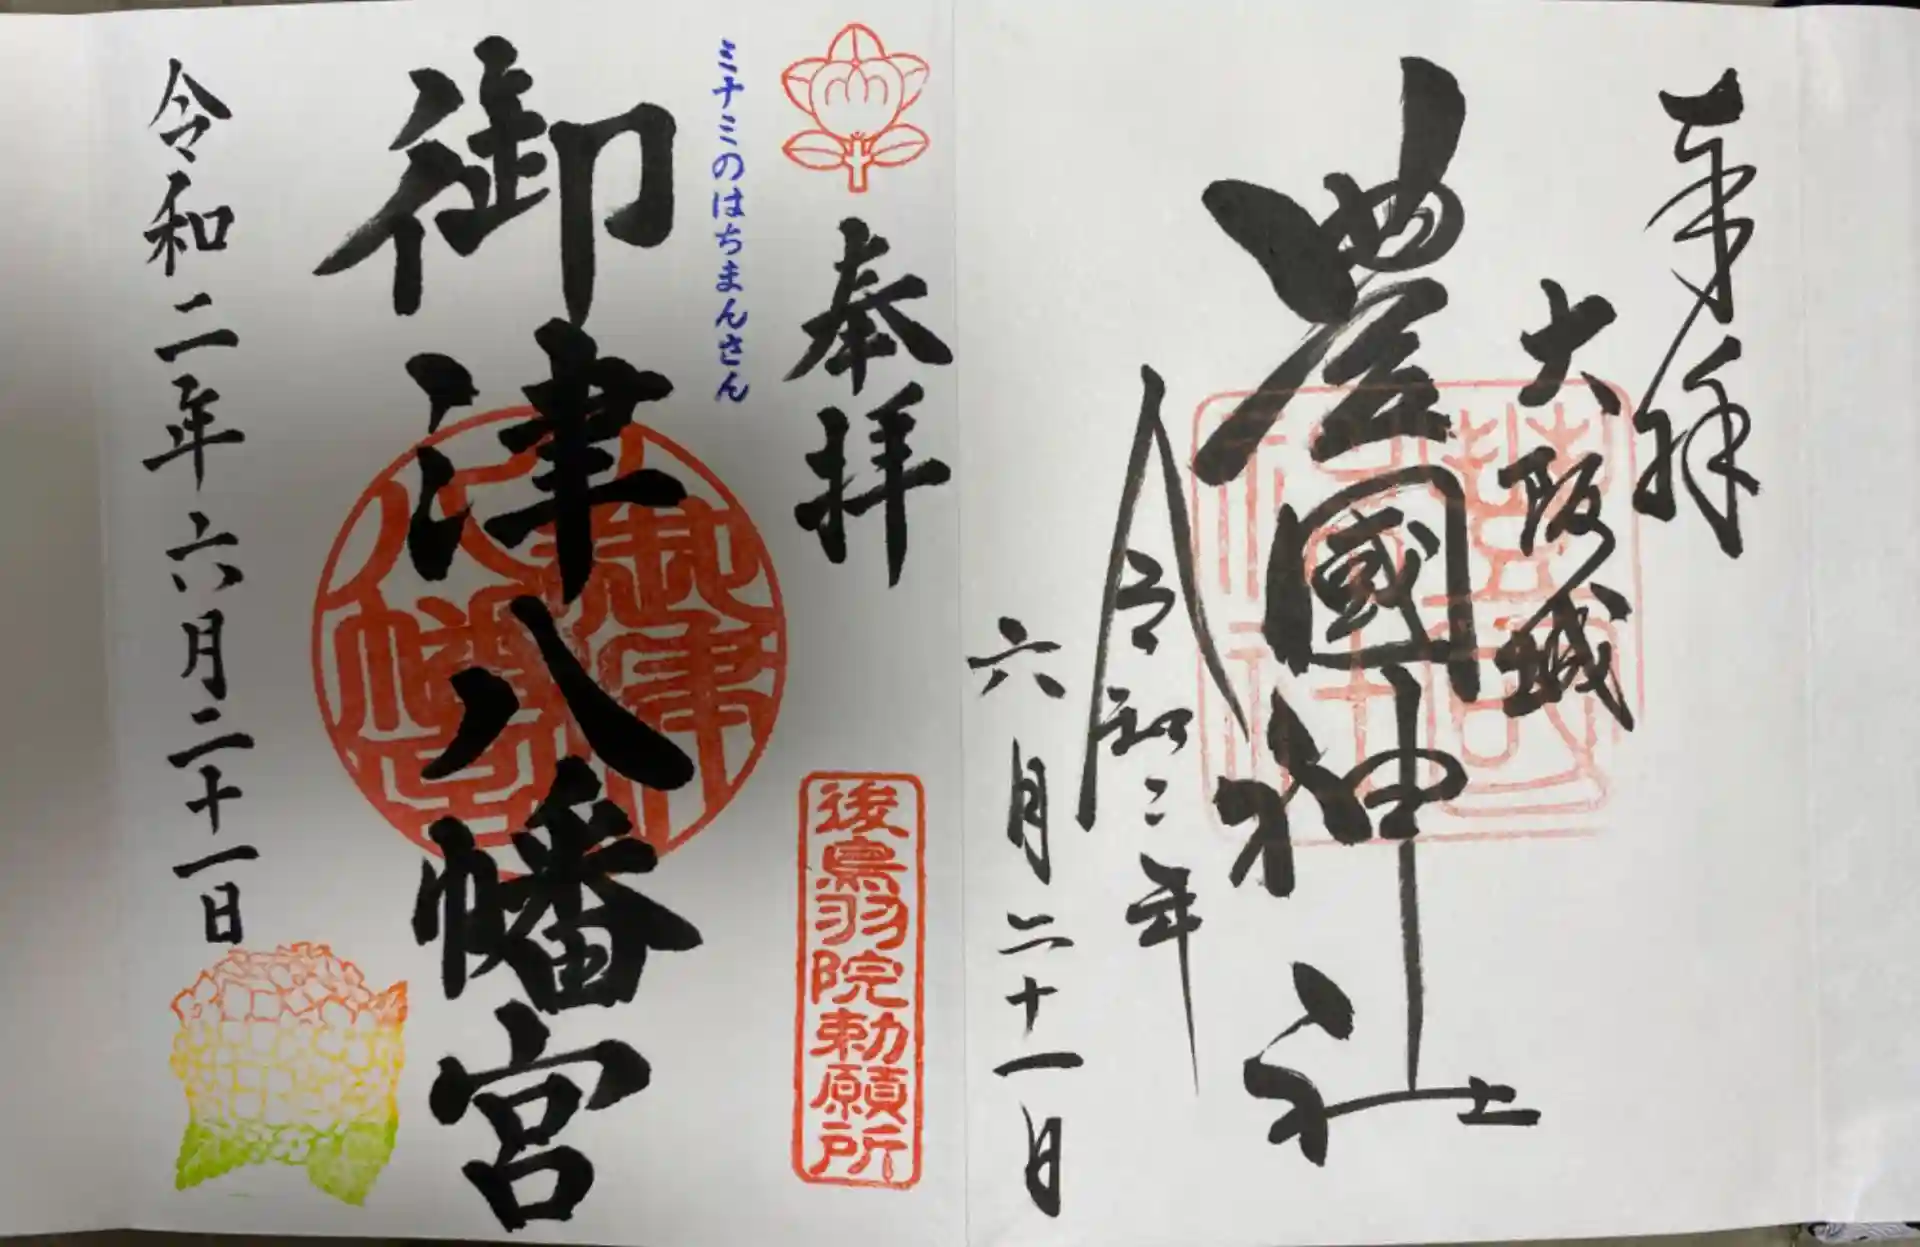 奉拝
大阪城
豊國神社
令和二年
六月二十一日
奉拝
後鳥羽院勅願所
ミナミのはちまんさん
御津八幡宮
御津八幡宮
令和二年六月二十一日